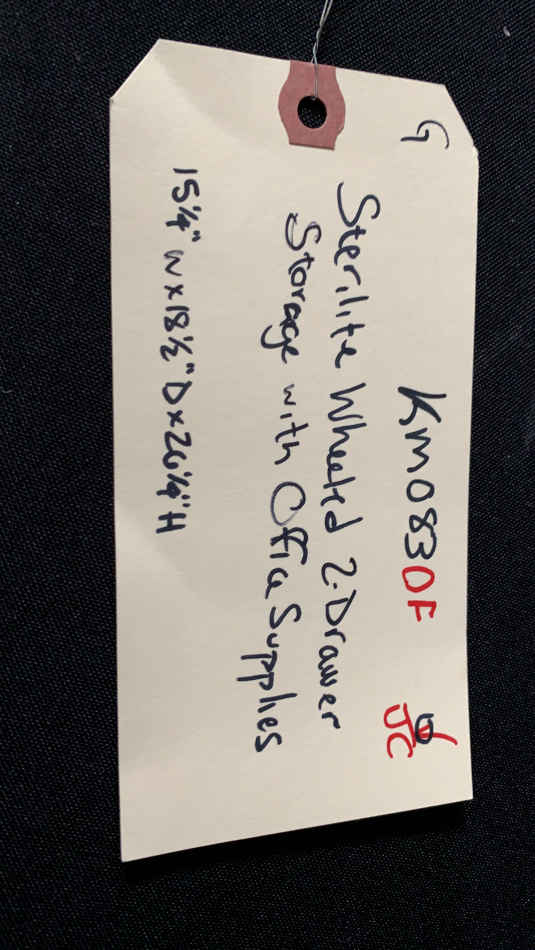 G
KM083OF
JC
Sterilite Wheeled 2-Drawer
Storage with Office Supplies
15¼" W x 18½" D x 26¼" H